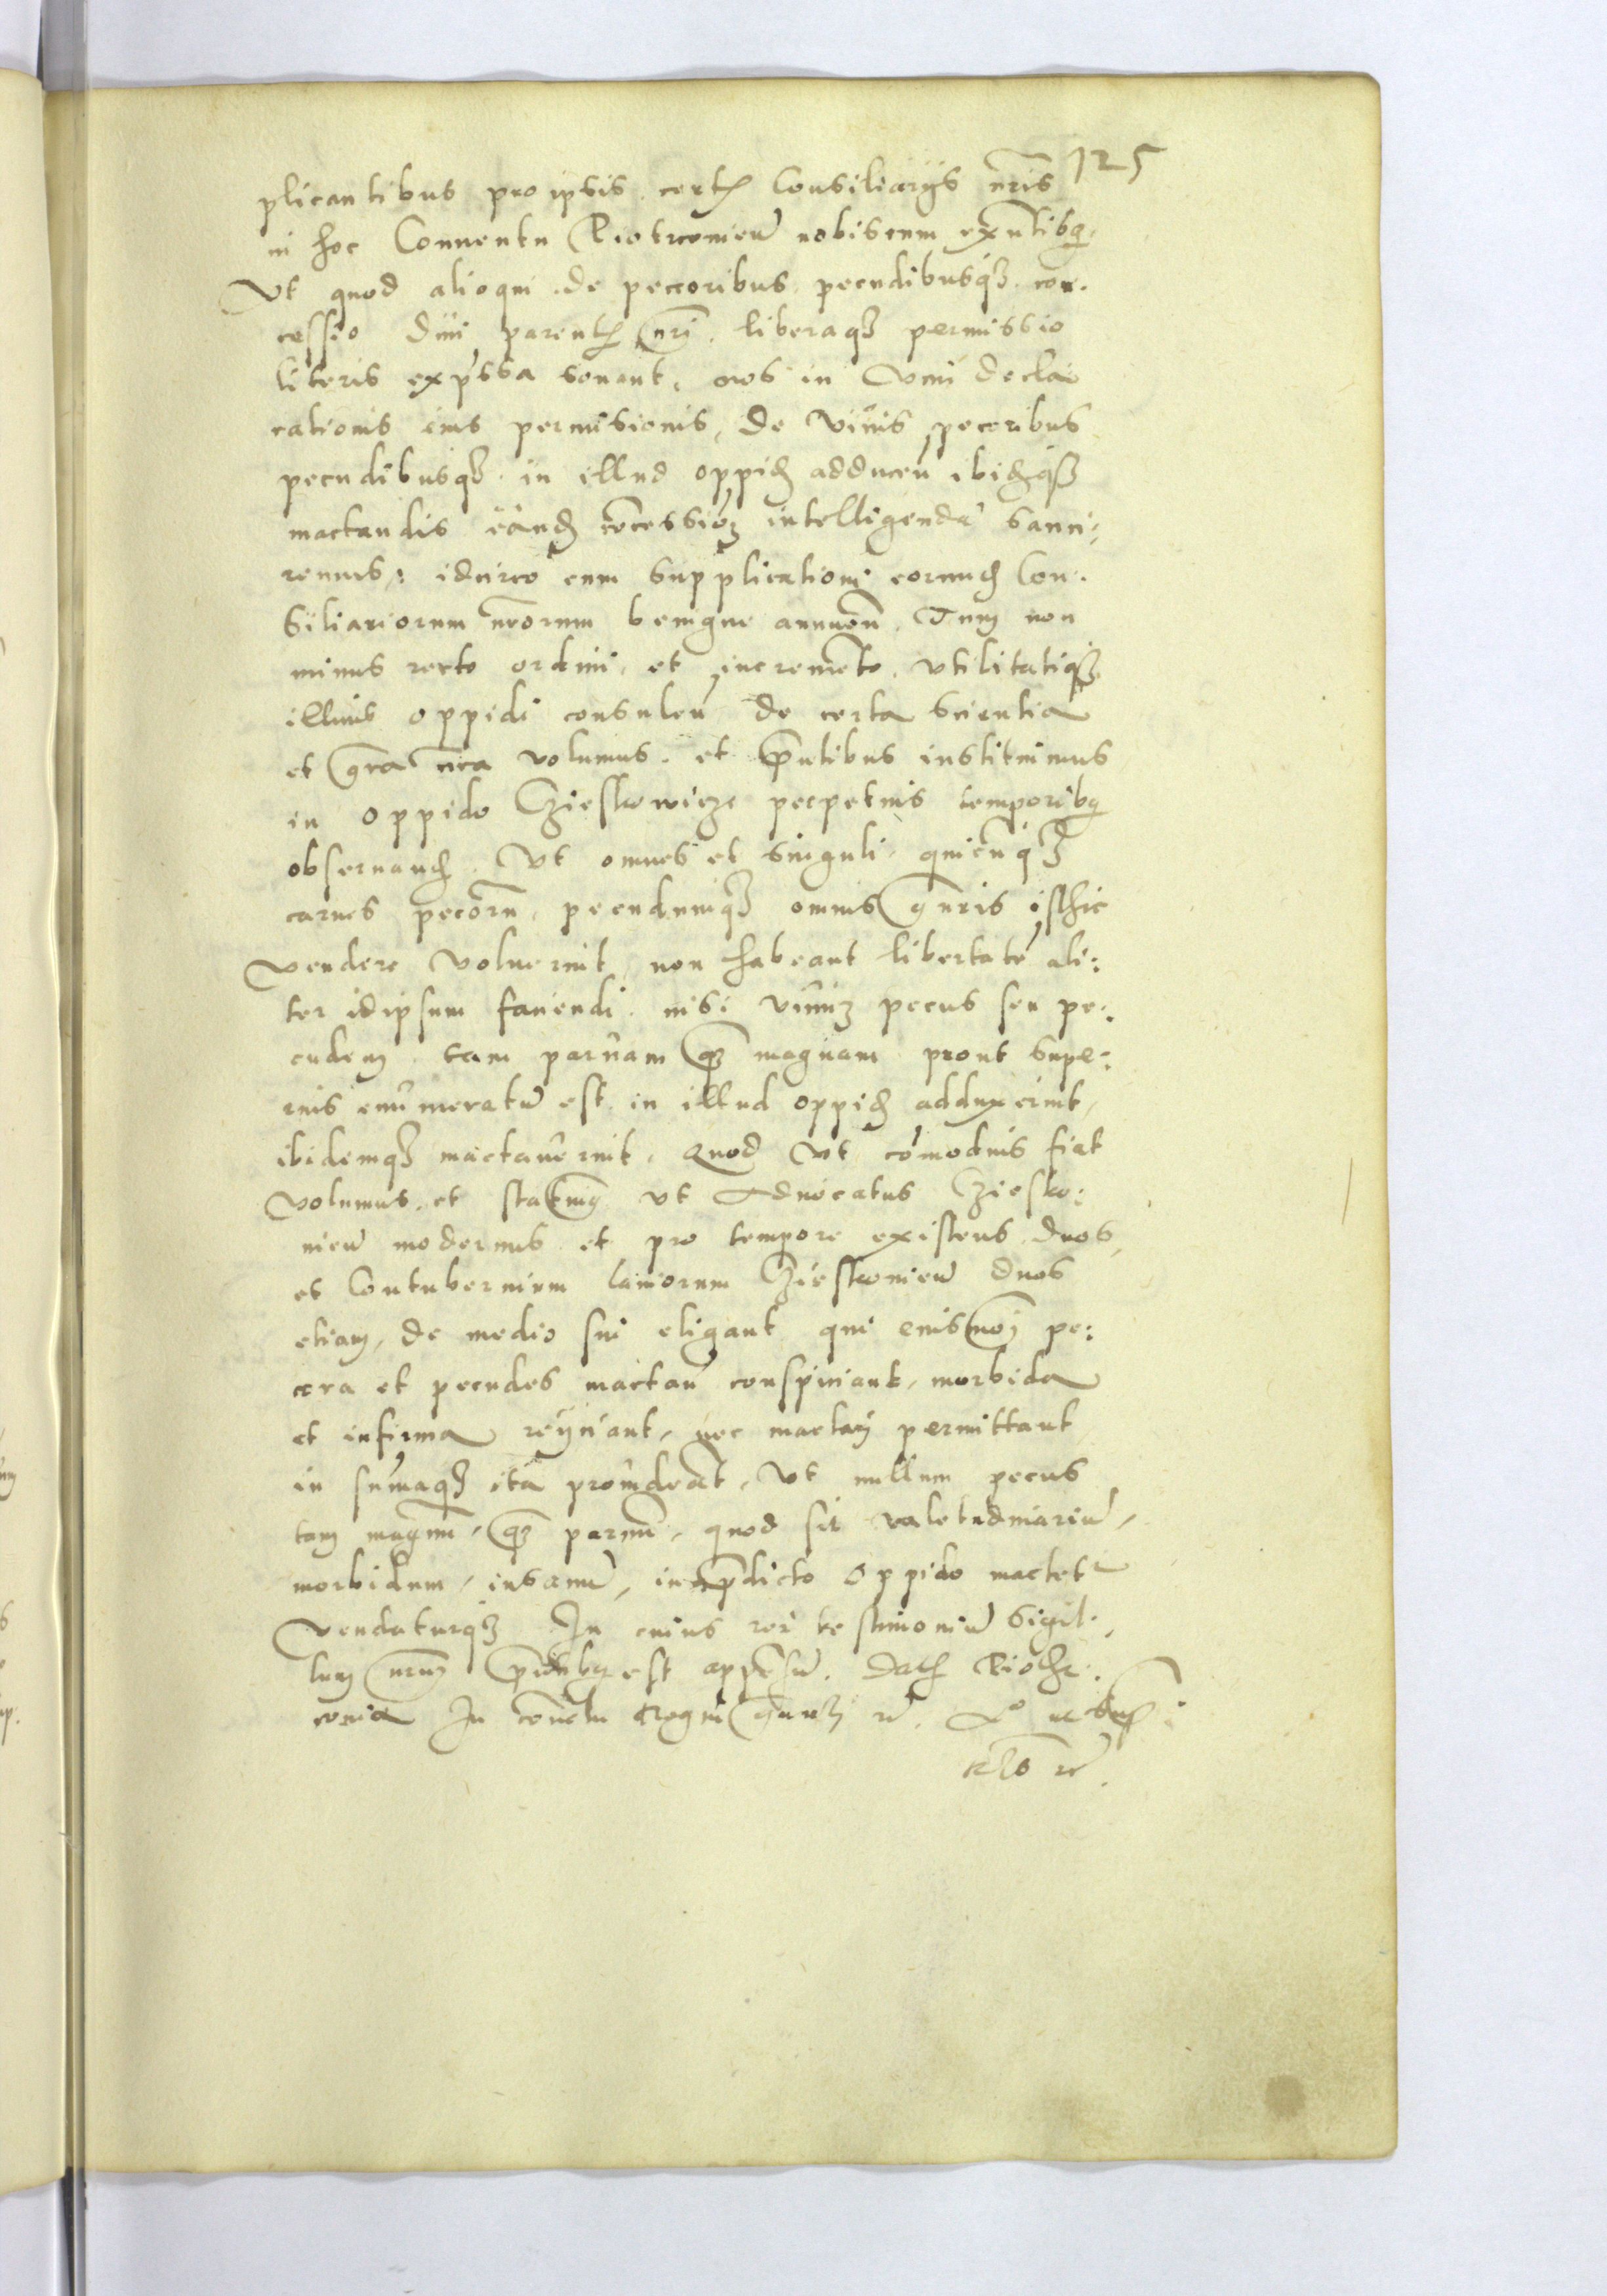 125
plicantibus pro ipsis certis Consiliarijs nr̄is
in hoc Conuentu Piotrcouien̄ nobiscum exn̄tibq
Vt quod alioqui de pecoribus pecudibusq₃ con.
cessio diui parentis nr̄i liberaq₃ permissio
literis expr̄ssa sonant, nos in vim decla
rationis eius permisionis, de viuis pecoribus
pecudibusq₃ in illud oppid. adducen̄ ibid.q₃
mactandis eand. cōcessiōꝫ intelligendā sanci:
remus: idcirco cum supplicationi eorund. Con.
siliariorum nr̄orum benigne annuen̄. Tum non
minus recto ordini, et incremēto, vtilitatiq₃
illius oppidi consulen̄ de certa scientia
et gr̄a nr̄a volumus. et p̄ntibus instituimus
in oppido Czieskowicze perpetuis temporibq
obseruand. Vt omnes et singuli quicūq₃
carnes pecorū, pecudumq₃ omnis gn̄ris isthic
vendere voluerint, non habeant libertatē ali:
ter idipsum faciendi. nisi viuūꝫ pecus seu pe:
cudem tam paruam qꝫ magnam prout supe:
rius enumeratū est in illud oppid. adduxerint,
ibidemq₃ mactauerint. Quod vt cōmodius fiat
volumus et statuimq vt Aduocatus Cziesko:
uien̄ modernus et pro tempore existens duos,
et Contubernium laniorum Czieskouien̄ duos
etiam, de medio sui eligant qui eiusmōi pe:
cora et pecudes mactan̄ conspiciant, morbida
et infirma reijciant, nec mactari permittant
in sūmaq₃ ita prouideāt, vt nullum pecus
tam magnū, qꝫ paruū, quod sit valetudinariū,
morbidum, insanū, in p̄dicto Oppido mactetr
vendaturq₃ In cuius rei testimoniū Sigil.
lum nr̄uꝫ p̄ntibq est appēsū. Dat. Piothr.
couia In conuētu Regni gn̄aꝫ